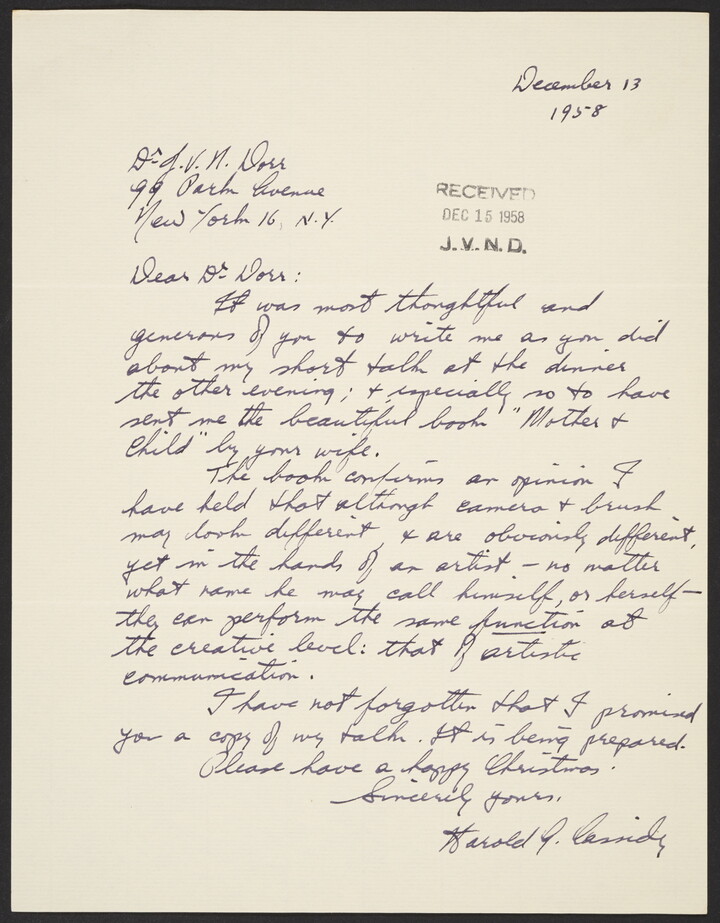 December 13
1958
Dr J. V. N. Dorr
99 Park Avenue
New York 16, N.Y.
RECEIVED
DEC 15 1958
J. V. N. D.
Dear Dr Dorr:
It was most thoughtful and
generous of you to write me as you did
about my short talk at the dinner
the other evening; & especially so to have
sent me the beautiful book "Mother &
Child" by your wife.
The book confirms an opinion I
have held that although camera & brush
may look different, & are obviously different,
yet in the hands of an artist — no matter
what name he may call himself, or herself —
they can perform the same function at
the creative level: that of artistic
communication.
I have not forgotten that I promised
you a copy of my talk. It is being prepared.
Please have a happy Christmas.
Sincerely yours,
Harold G. Cassidy